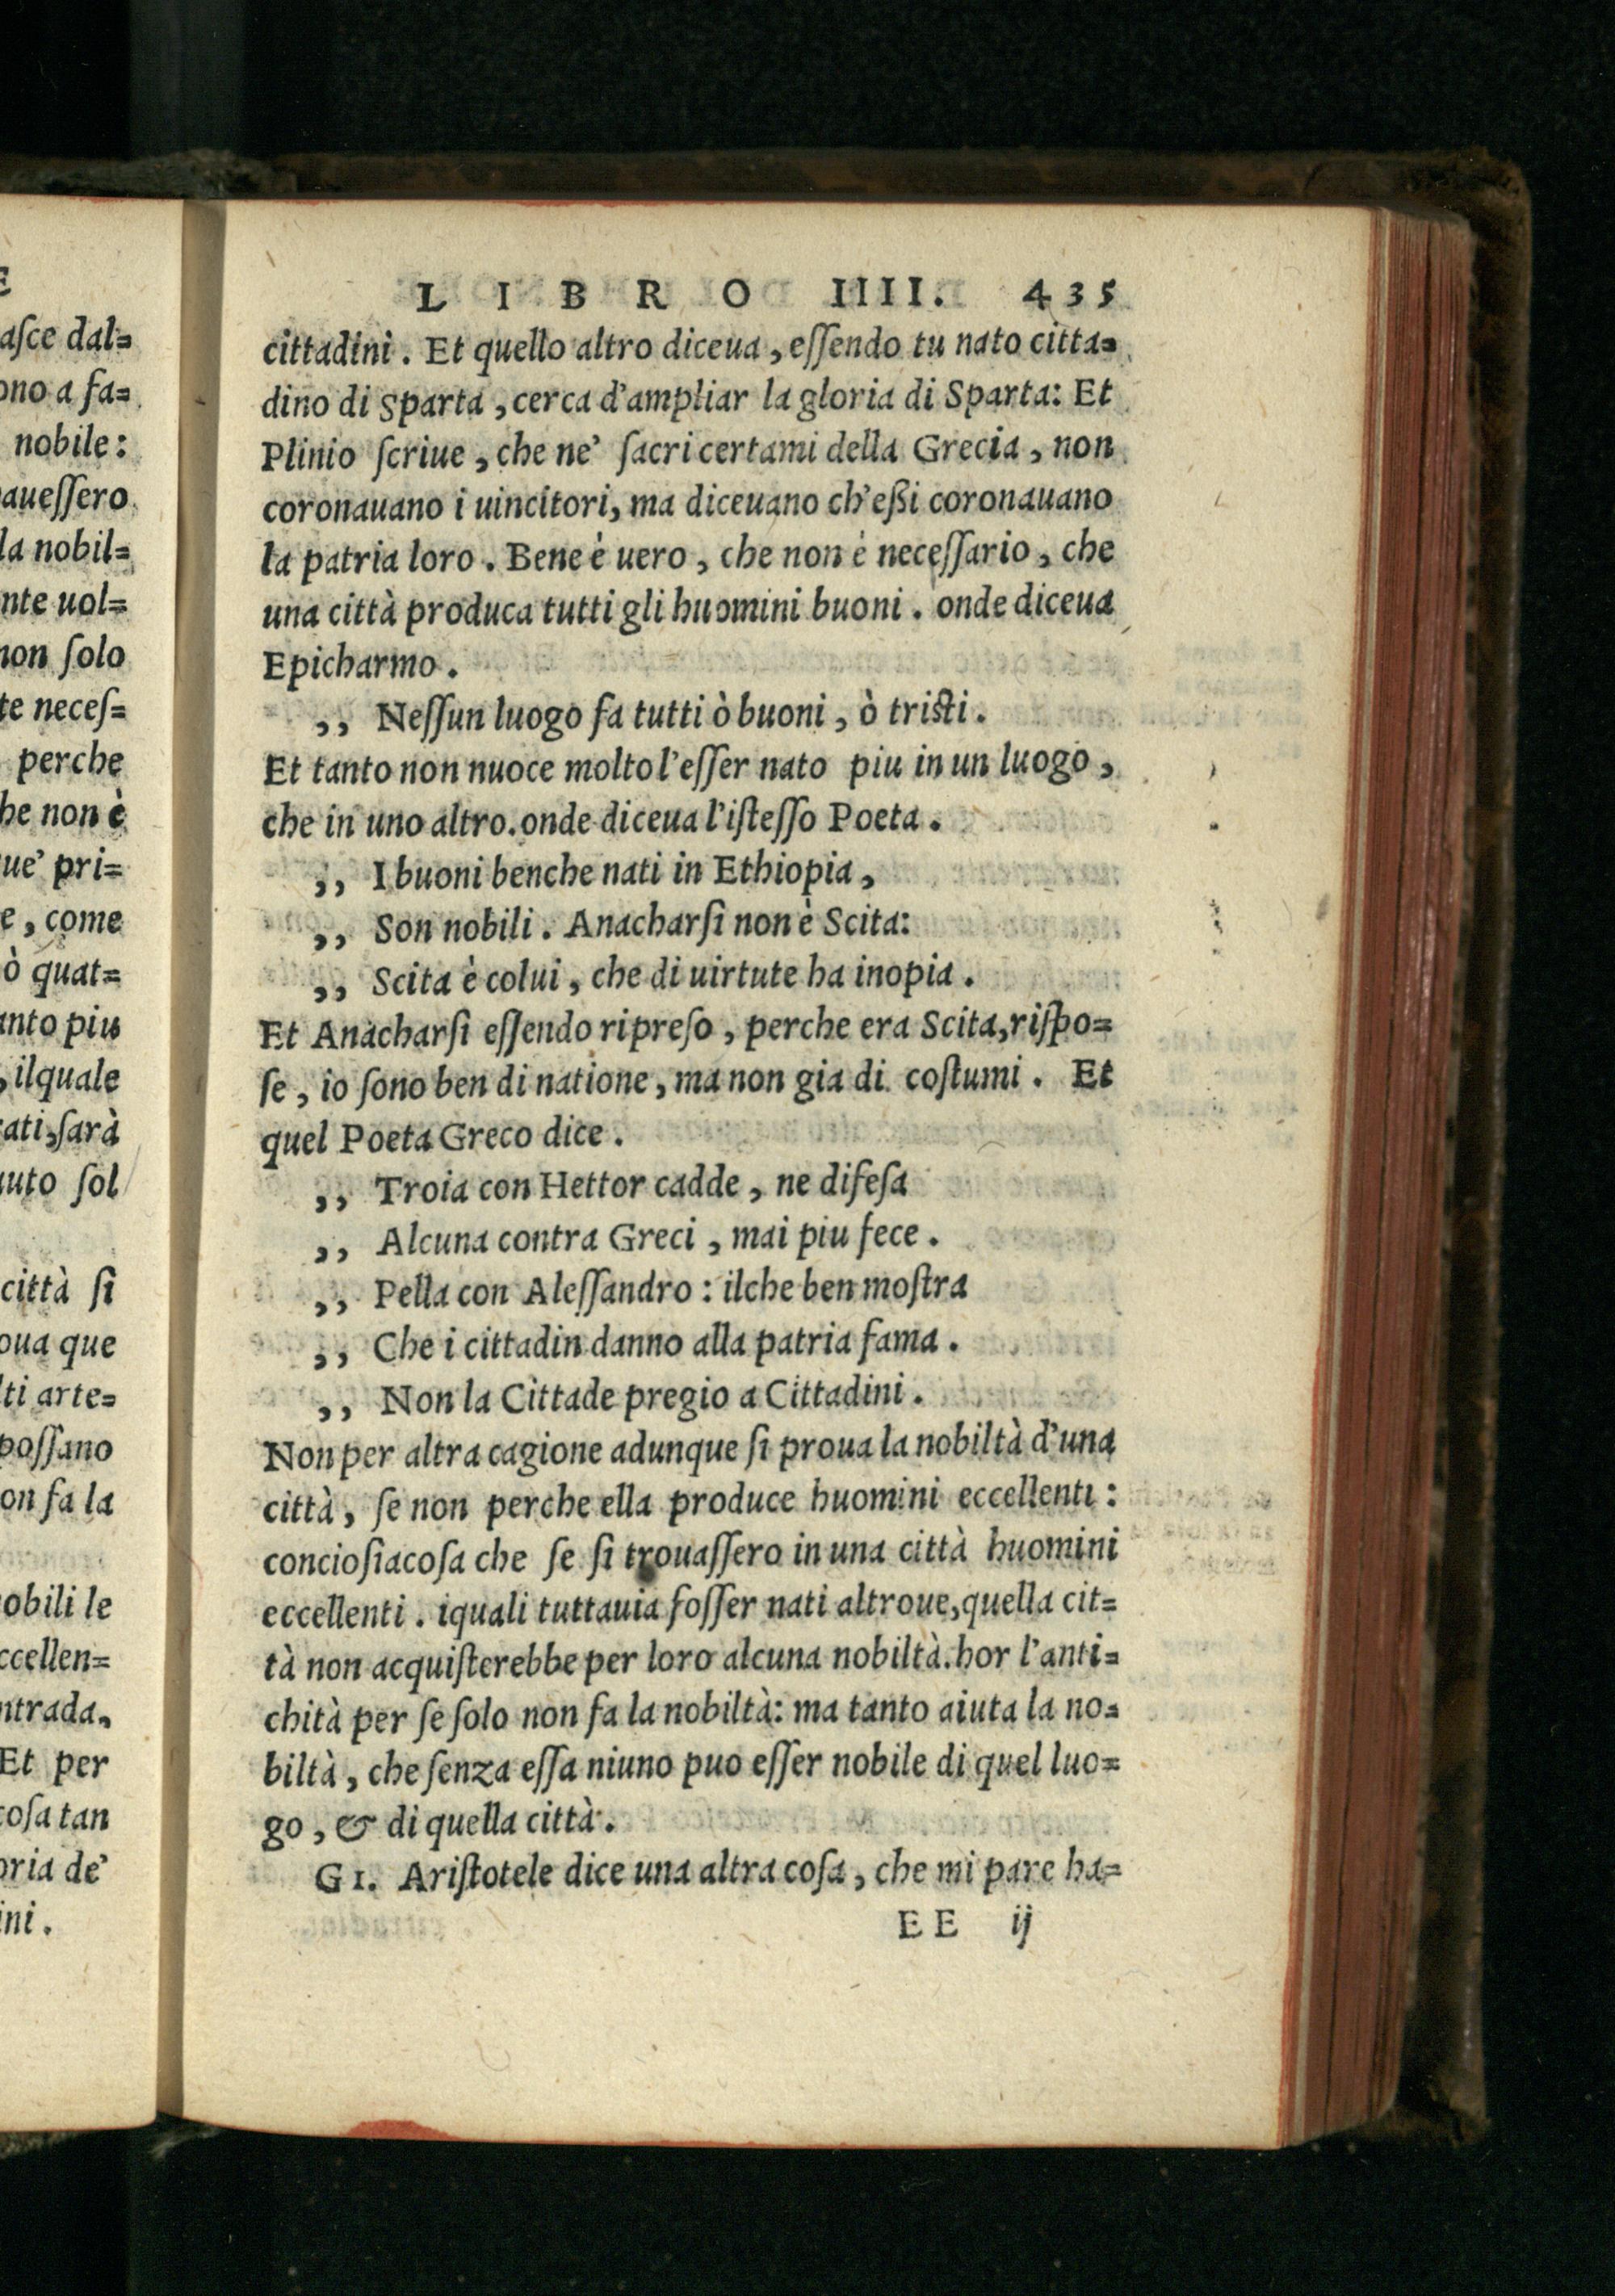 E
aſce dal=
ono a fa=
nobile:
aueſſero
la nobil=
nte uol=
non ſolo
te neceſ=
perche
he non è
ue' pri=
e, come
ò quat=
anto piu
, ilquale
ati, ſarà
uto ſol
città ſi
oua que
lti arte=
poſſano
on fa la
obili le
ccellen=
ntrada,
Et per
coſa tan
oria de'
ini.
LIBRO IIII. 435
cittadini. Et quello altro diceua, eſſendo tu nato citta=
dino di Sparta, cerca d'ampliar la gloria di Sparta: Et
Plinio ſcriue, che ne' ſacri certami della Grecia, non
coronauano i uincitori, ma diceuano ch'eßi coronauano
la patria loro. Bene è uero, che non è neceſſario, che
una città produca tutti gli huomini buoni. onde diceua
Epicharmo.
,, Neſſun luogo fa tutti ò buoni, ò triſti.
Et tanto non nuoce molto l'eſſer nato piu in un luogo,
che in uno altro. onde diceua l'iſteſſo Poeta.
,, I buoni benche nati in Ethiopia,
,, Son nobili. Anacharſi non è Scita:
,, Scita è colui, che di uirtute ha inopia.
Et Anacharſi eſſendo ripreſo, perche era Scita, riſpo=
ſe, io ſono ben di natione, ma non gia di coſtumi. Et
quel Poeta Greco dice.
,, Troia con Hettor cadde, ne difeſa
,, Alcuna contra Greci, mai piu fece.
,, Pella con Aleſſandro: ilche ben moſtra
,, Che i cittadin danno alla patria fama.
,, Non la Cittade pregio a Cittadini.
Non per altra cagione adunque ſi proua la nobiltà d'una
città, ſe non perche ella produce huomini eccellenti:
concioſiacoſa che ſe ſi trouaſſero in una città huomini
eccellenti. iquali tuttauia foſſer nati altroue, quella cit=
tà non acquiſterebbe per loro alcuna nobiltà. hor l'anti=
chità per ſe ſolo non fa la nobiltà: ma tanto aiuta la no=
biltà, che ſenza eſſa niuno puo eſſer nobile di quel luo=
go, & di quella città.
GI. Ariſtotele dice una altra coſa, che mi pare ha=
EE ij